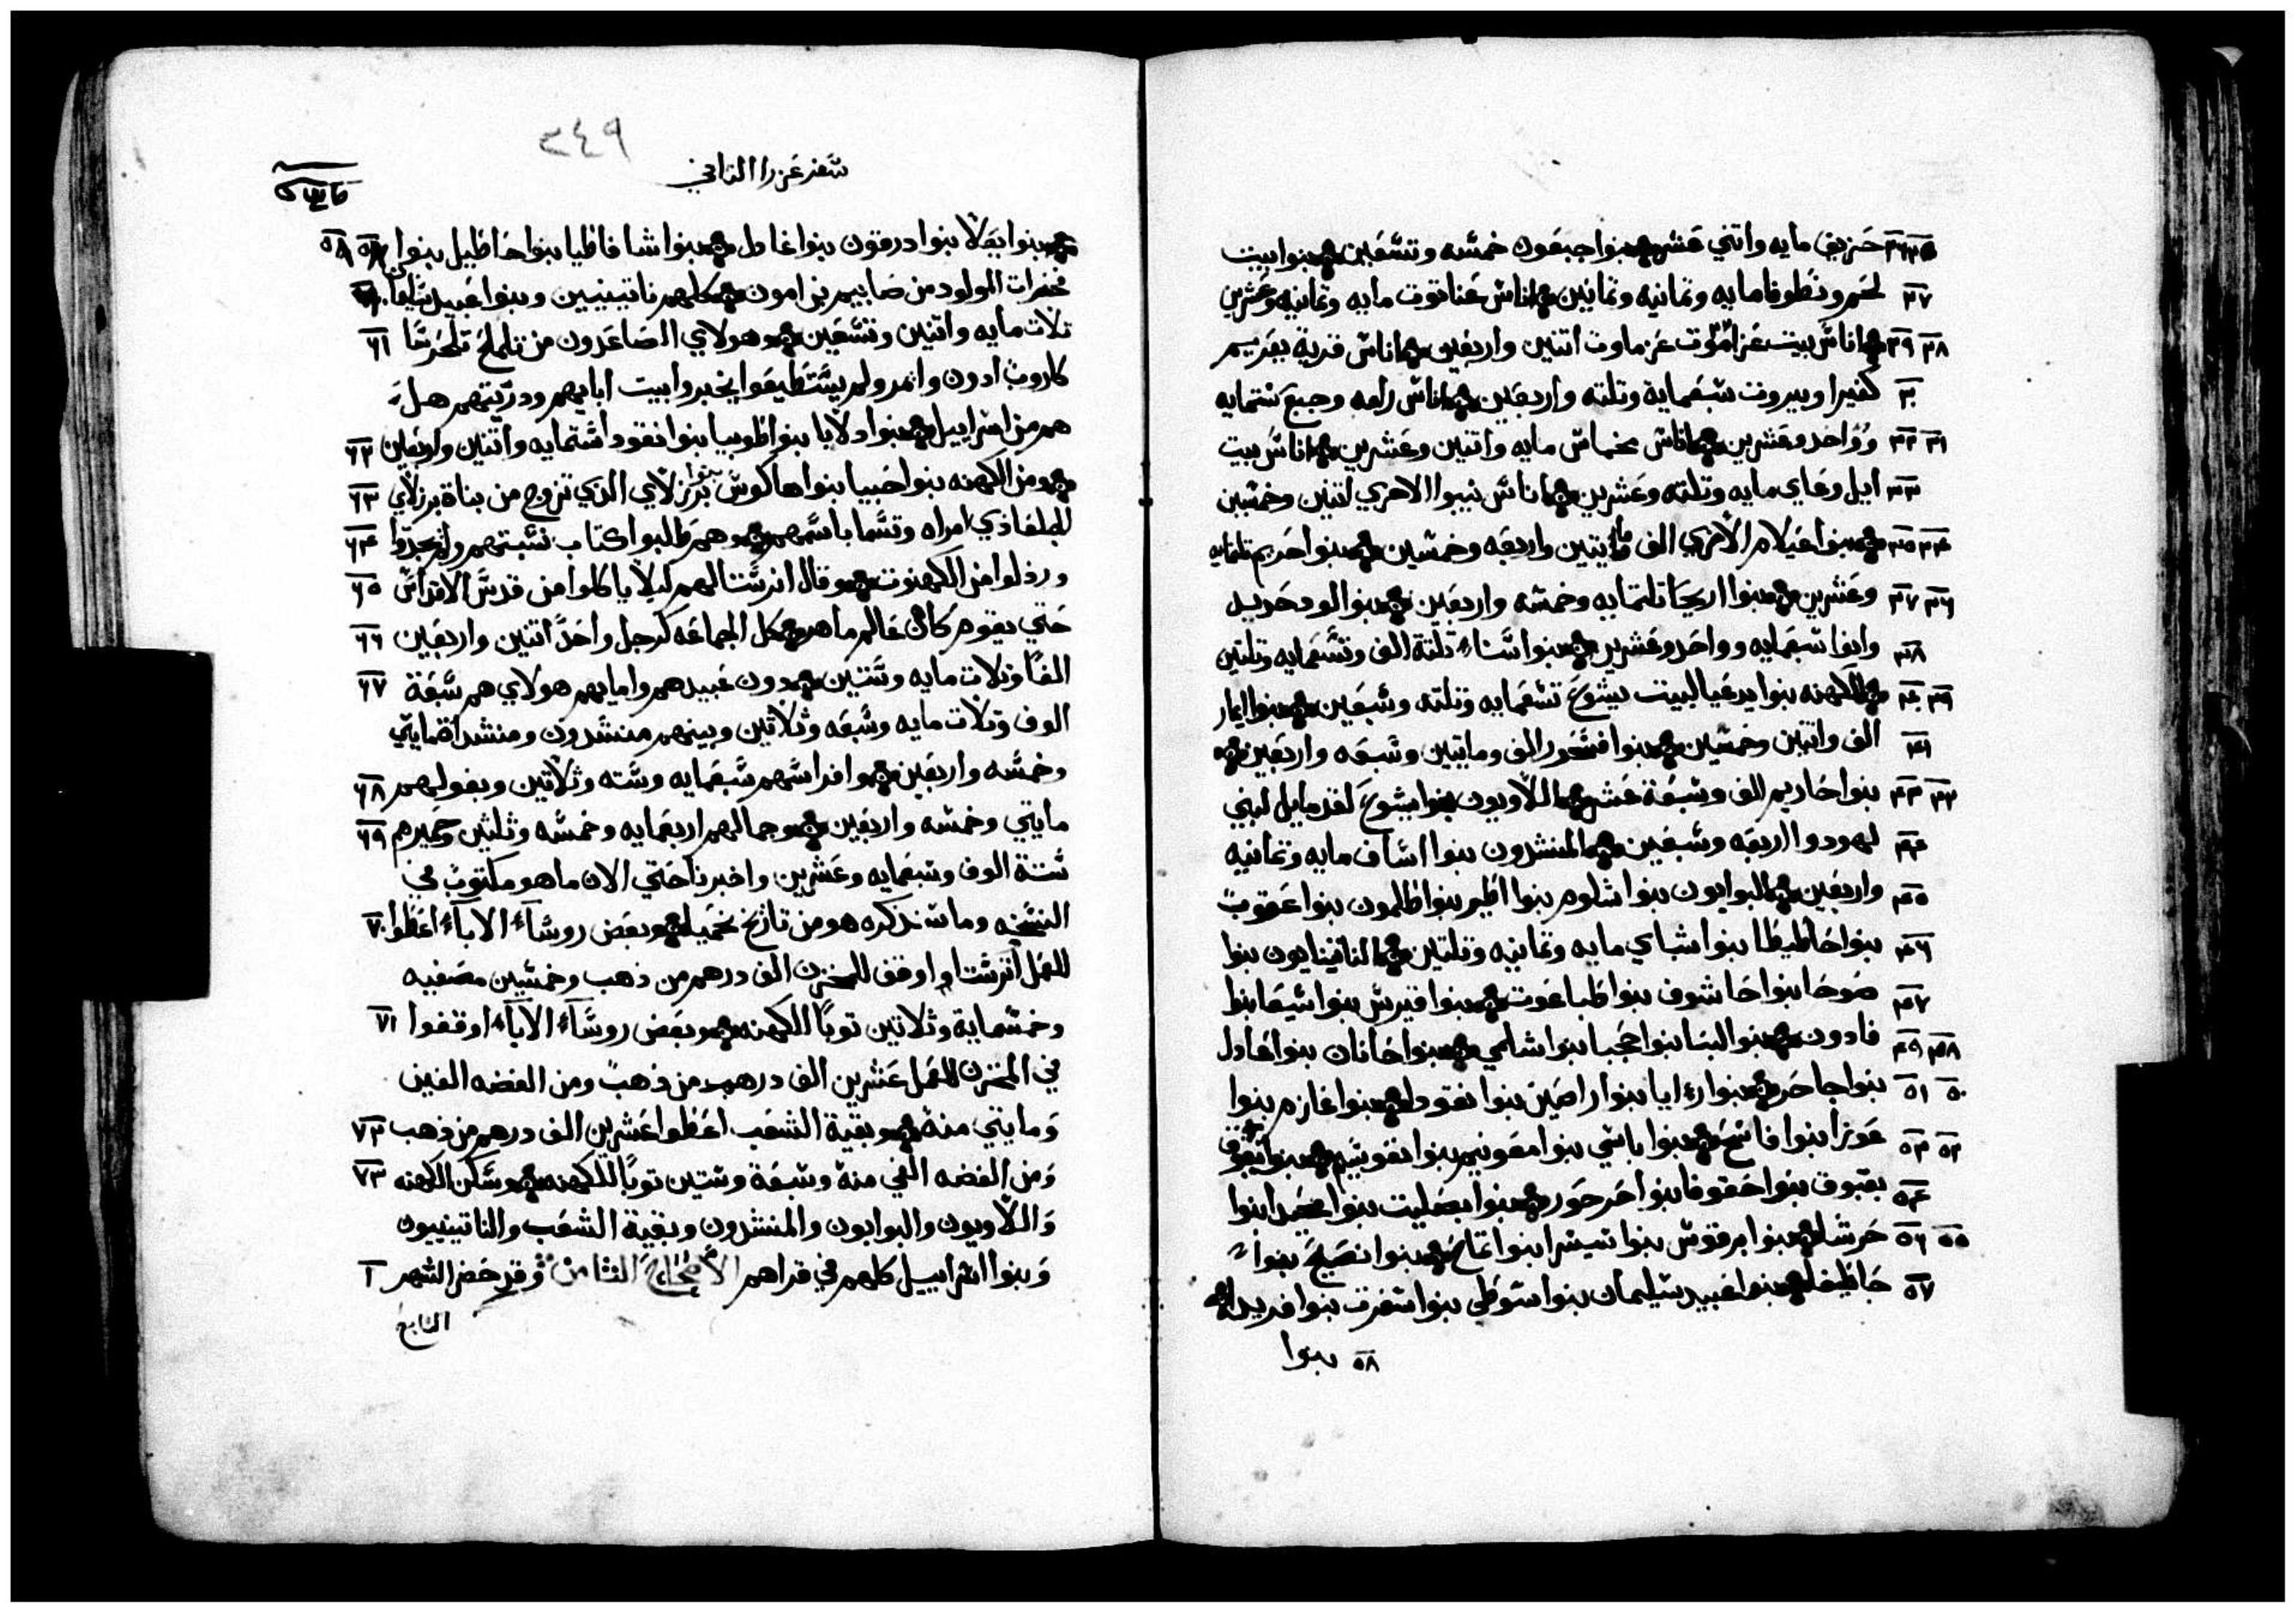 حزيف مايه واتني عشر بنوا جبعون خمسه وتسعين بنوا بيت
لحم ونطوفا مايه وتمانيه وتمانين اناس عناتوت مايه وتمانيه وعشرين
اناس بيت عزاموت عزماوت اتنين واربعين اناس قرية يعريم
كفيرا وبيروت سبعماية وتلته واربعين اناس رامه وجبع ستمايه
وواحد وعشرين اناس مخماس مايه واتنين وعشرين اناس بيت
ايل وعاي مايه وتلته وعشرين اناس نيبوا الاخري اتنين وخمسين
بنوا عيلام الاخري الف ومايتين واربعه وخمسين بنوا احريم تلتمايه
وعشرين بنوا اريحا تلتمايه وخمسه واربعين بنوا لود حديد
واونوا سبعمايه وواحد وعشرين بنوا سناء تلتة الف وتسعمايه وتلتين
الكهنه بنوا يدعيا لبيت يشوع تسعمايه وتلته وسبعين بنوا ايمار
الف واتنين وخمسين بنوا فشحور الف ومايتين وسبعه واربعين
بنوا حاريم الف وسبعة عشر اللاويون بنوا يشوع لقدمايل لبني
لهودوا اربعه وسبعين المنشدون بنوا اساف مايه وتمانيه
واربعين البوابون بنوا شلوم بنوا اطير بنوا طلمون بنوا عقوب
بنوا حاطيطا بنوا شباي مايه وتمانيه وتلتين الناتينايون بنوا
صوحا بنوا حاشوف بنوا طباعوت بنوا قيرس بنوا سيعا بنوا
فادون بنوا لبنا بنوا حجبا بنوا شلمي بنوا حانان بنوا غادل
بنوا جاحر بنوا رءايا بنوا راصين بنوا نقودا بنوا غازم بنوا
عوزا بنوا فاسح بنوا باسي بنوا معونيم بنوا نفوسيم بنوا
بقبوق بنوا حقوفا بنوا حرحور بنوا بصليت بنوا محيدا بنوا
حرشا بنوا برقوس بنوا سيسرا بنوا تماح بنوا نصيح بنوا
حاطيفا بنوا عبيد سليمان بنوا سوطي بنوا سفرت بنوا فريدا
بنوا
٣٤٩
سفر عزرا الثاني
بنوا يعلا بنوا درقون بنوا غادل بنوا شافاطيا بنوا حاطيل بنوا
فخرات المولود من صابيم بن امون كلهم ناتينيين وبنوا عبيد سليمان
تلات مايه واتنين وتسعين وهولاي الصاعدون من تلملح تلحرسا
كاروب ادون وامر ولم يستطيعوا يخبروا بيت ابايهم ودريتهم هل
هم من اسراييل بنوا دلايا بنوا طوبيا بنوا نقودا ستمايه واتنين واربعين
ومن الكهنه بنوا حبيا بنوا هاكوس بنوا برزلاي الذي تزوج من بناة برزلاي
الجلعادي امراه وتسما باسمهم وهم طالبوا كتاب نسبتهم ولم يجدوا
ورذلوا من الكهنوت وقال اترشتا لهم ليلا ياكلوا من قدس الاقداس
حتي يقوم كاهن عالم ماهر كل الجماعه كرجل واحدا اتنين واربعين
الفا وتلات مايه وستين دون عبيدهم وامايهم هولاي هم سبعة
الوف وتلات مايه وسبعه وثلاتين وبينهم منشدون ومنشدات مايتي
وخمسه واربعين وافراسهم سبعمايه وسته وثلاتين وبغولهم
مايتي وخمسه واربعين وجمالهم اربعمايه وخمسه وثلثين وحميرهم
ستة الوف وسبعمايه وعشرين واخبرنا حتي الان ما هو مكتوب في
النسخه وما سنذكره هو من تاريخ نحميا وبعض روساء الاباء اعطوا
للعمل اترشتا اوقف للمخزن الف درهم من ذهب وخمسين مصفيه
وخمسماية وثلاتين توبا للكهنه وبعض روساء الاباء اوقفوا
في المخزن للعمل عشرين الف درهم من ذهب ومن الفضه الفين
ومايتي منة وبقية الشعب اعطوا عشرين الف درهم من ذهب
ومن الفضه الفي منة وسبعة وستين توبا للكهنه وسكن الكهنه
واللاويون والبوابون والمنشدون وبقية الشعب والناتينييون
وبنوا اسراييل كلهم في قراهم الاصحاح الثامن وقد حضر الشهر
السابع